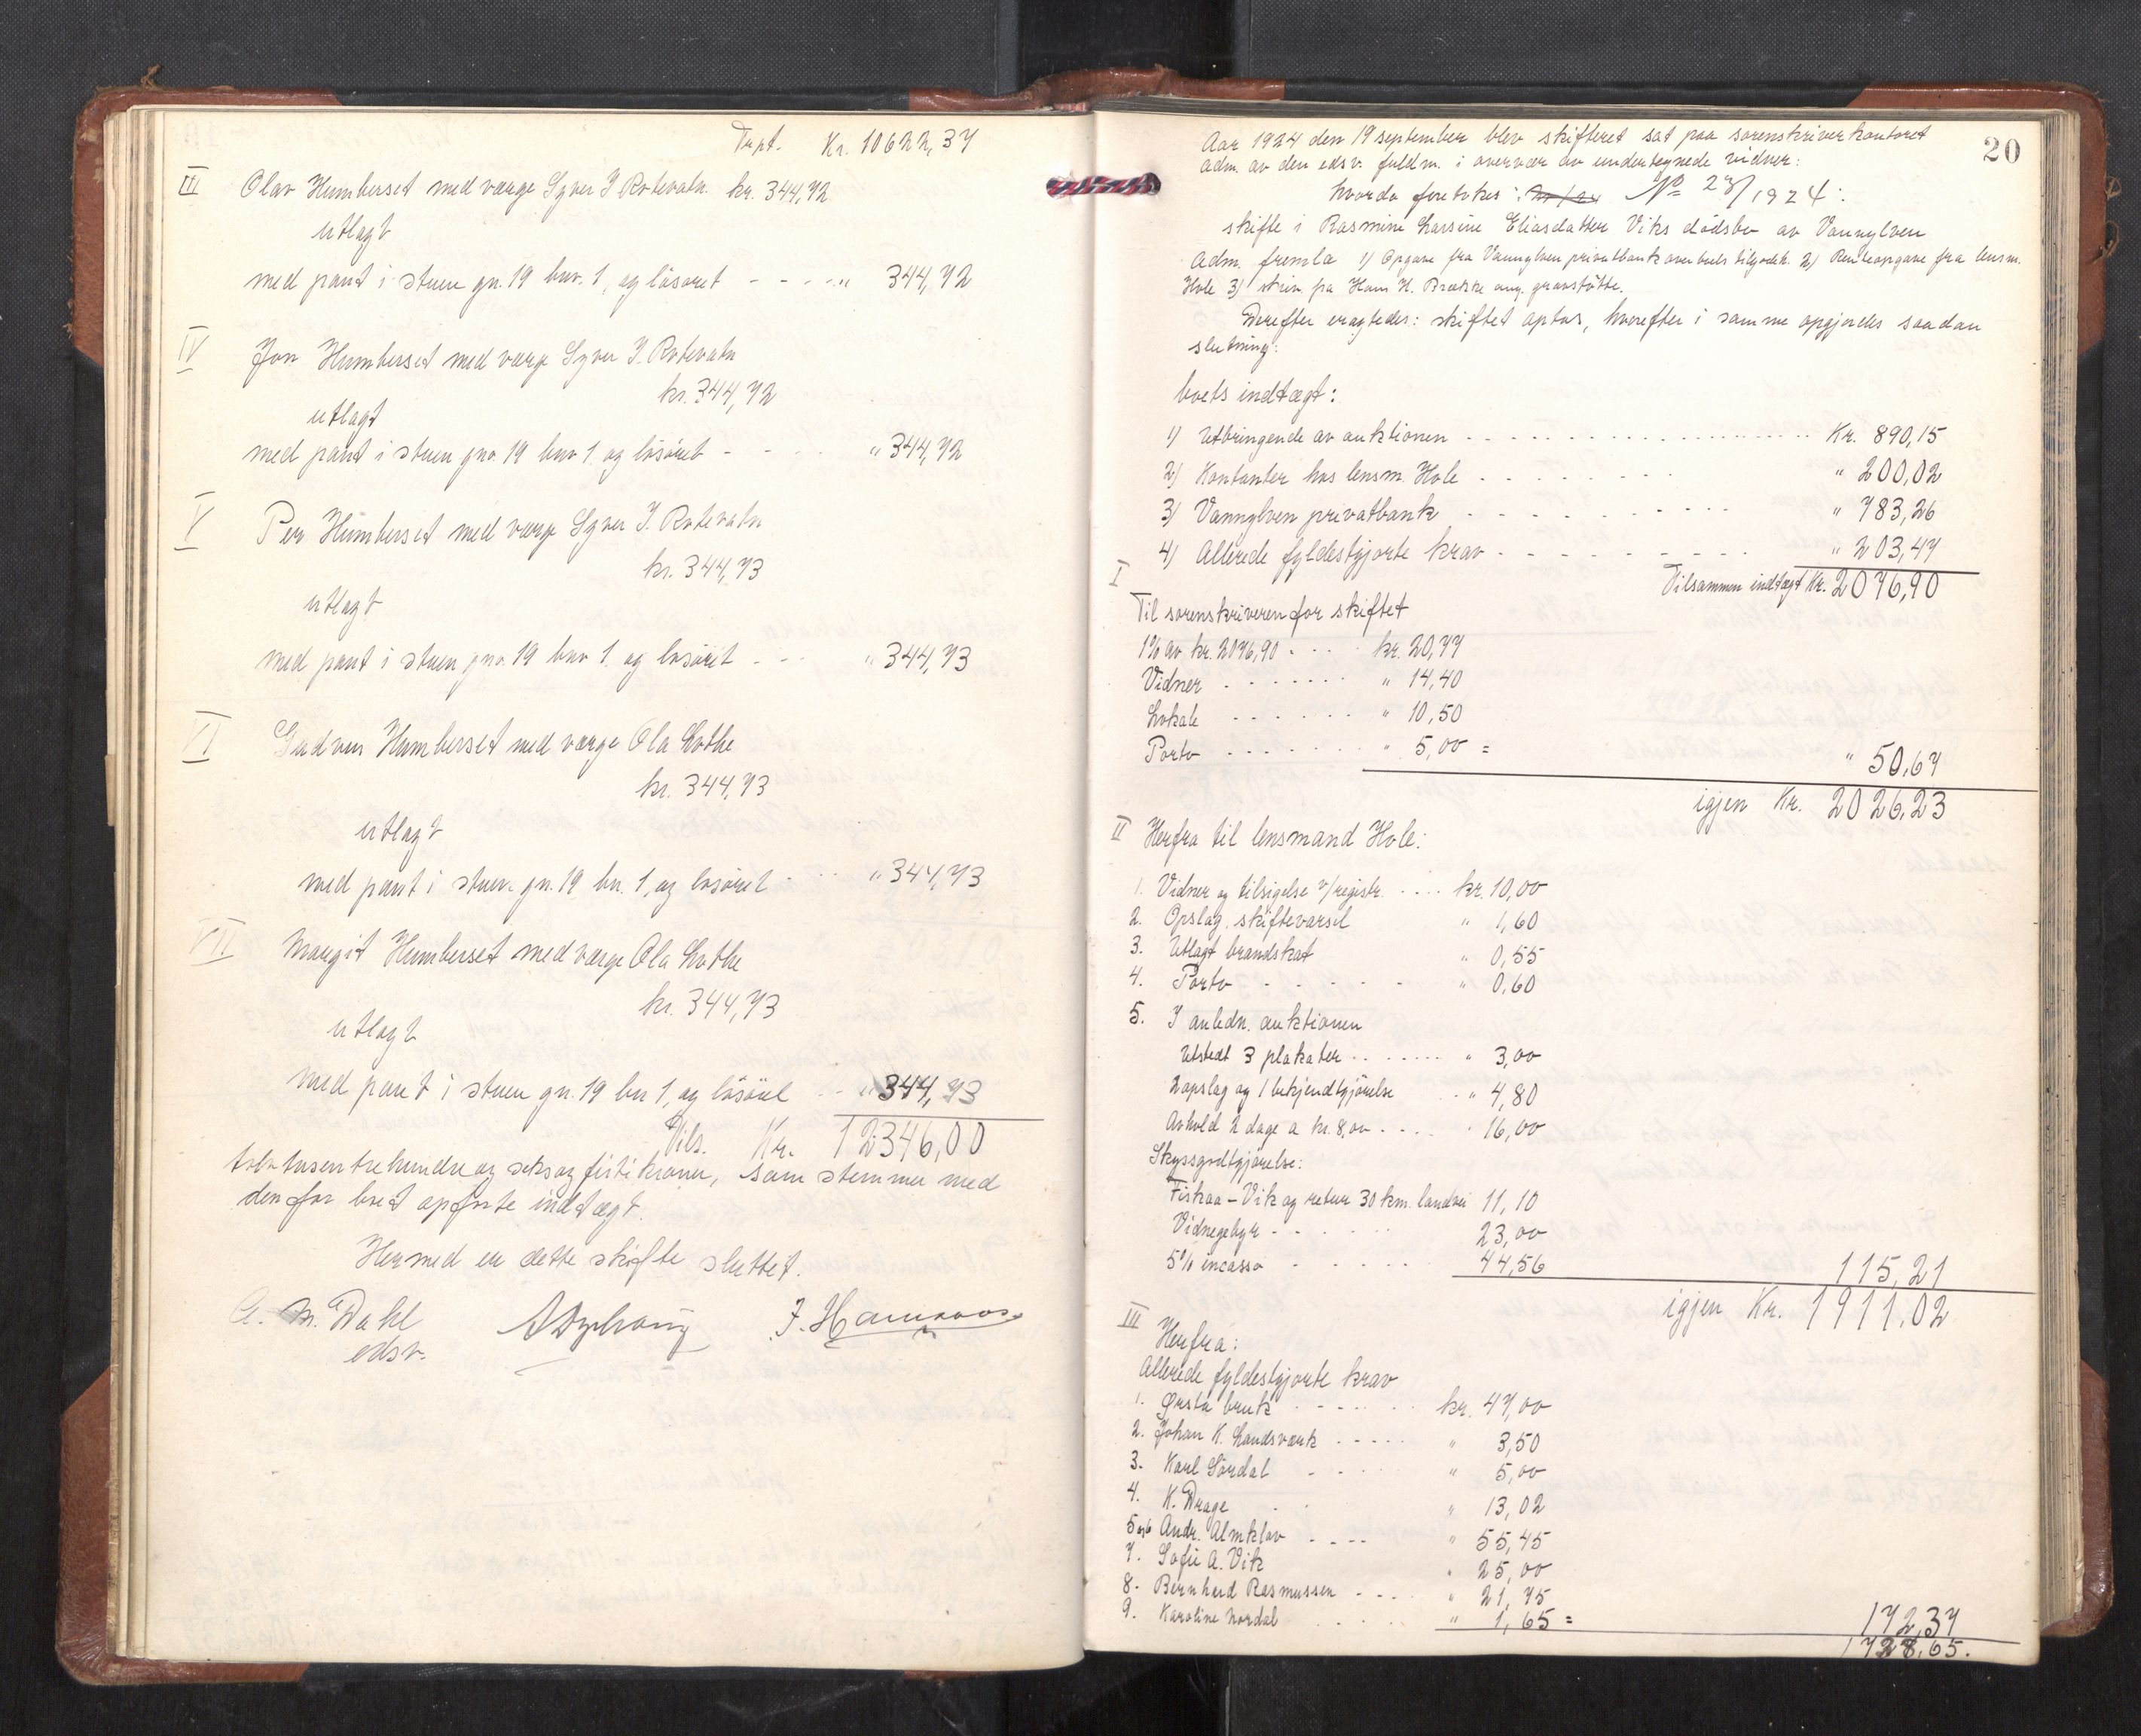 Trpt. Kr. 10622,37
III Olav Humberset med værge Syver I Rotevatn. kr. 344,72
utlagt
med pant i stuen gn. 19 bnr. 1, og løsøret - - - - " 344,72
IV Jon Humberset med værge Syver I. Rotevatn
kr. 344,72
utlagt
med pant i stuen gno. 19 bnr 1. og løsøret - - - " 344,72
V Per Humberset med værge Syver I. Rotevatn
kr. 344,73
utlagt
med pant i stuen gno. 19 bnr 1. og løsøret - - - " 344,73
VI Gudrun Humberset med værge Ola Lothe
kr. 344,73
utlagt
med pant i stuen gn. 19 bn. 1, og løsøret - - - " 344,73
VII Margit Humberset med værge Ola Lothe
kr. 344,73
utlagt
med pant i stuen gn. 19 bn 1, og løsøret - - " 344,73
Tils. Kr. 12346,00
tolvtusentrehundreogseksogfirtikroner, som stemmer med
den for boet opførte indtægt.
Hermed er dette skifte sluttet.
A. M. Dahl J. Hamraas
edsv.
20
Aar 1924 den 19 september blev skifteret sat paa sorenskriverkontoret
adm. av den edsv. fuldm. i overvær av undertegnede vidner:
hvorda foretokes: No 27/1924:
skifte i Rasmine Larsine Eliasdatter Viks dødsbo av Vannylven
Adm. fremla 1) Opgave fra Vannylven privatbank over boets tilgodeh. 2) Renteopgave fra lensm.
Hole 3) skriv. fra Hans H. Brække ang. gravstøtte.
Derefter eragtedes: skiftet optas, hvorefter i samme opgjordes saadan
slutning:
boets indtægt:
1) Utbringende av auktionen - - - - Kr. 890,15
2) Kontanter hos lensm. Hole - - - - " 200,02
3) Vannylven privatbank - - - - " 783,26
4) Allerede fyldestgjorte krav - - - - " 203,47
Tilsammen indtægt Kr. 2076,90
I
Til sorenskriveren for skiftet
1% av kr. 2076,90 - - - kr. 20,77
Vidner - - - - " 14,40
Lokale - - - - " 10,50
Porto - - - - " 5,00 = " 50,67
igjen Kr. 2026,23
II Herfra til lensmand Hole:
1. Vidner og tilsigelse v/registr. - - - kr. 10,00
2. Opslag. skiftevarsel " 1,60
3. Utlagt brandskat " 0,55
4. Porto - - - - " 0,60
5. I anledn. auktionen
Utstedt 3 plakater - - - - " 3,00
2 opslag og 1 bekjendtgjørelse - " 4,80
Avhold 2 dage a kr. 8,00 - - - " 16,00
Skyssgodtgjørelse:
Fiskaa - Vik og retur 30 km. landvei 11,10
Vidnegebyr - - - - 23,00
5% incasso - - - - 44,56 115,21
igjen Kr. 1911,02
III Herfra:
Allerede fyldestgjorte krav
1. Ørsta bruk - - - - kr. 47,00
2. Johan K. Landsværk - - - - " 3,50
3. Karl Sørdal - - - - " 5,00
4. K. Drage - - " 13,02
5 og 6 Andr. Almklov - - - - " 55,45
7. Sofie A. Vik " 25,00
8. Bernhard Rasmussen - - - - " 21,75
9. Karoline Nordal - - - - " 1,65 = 172,37
1728,65.